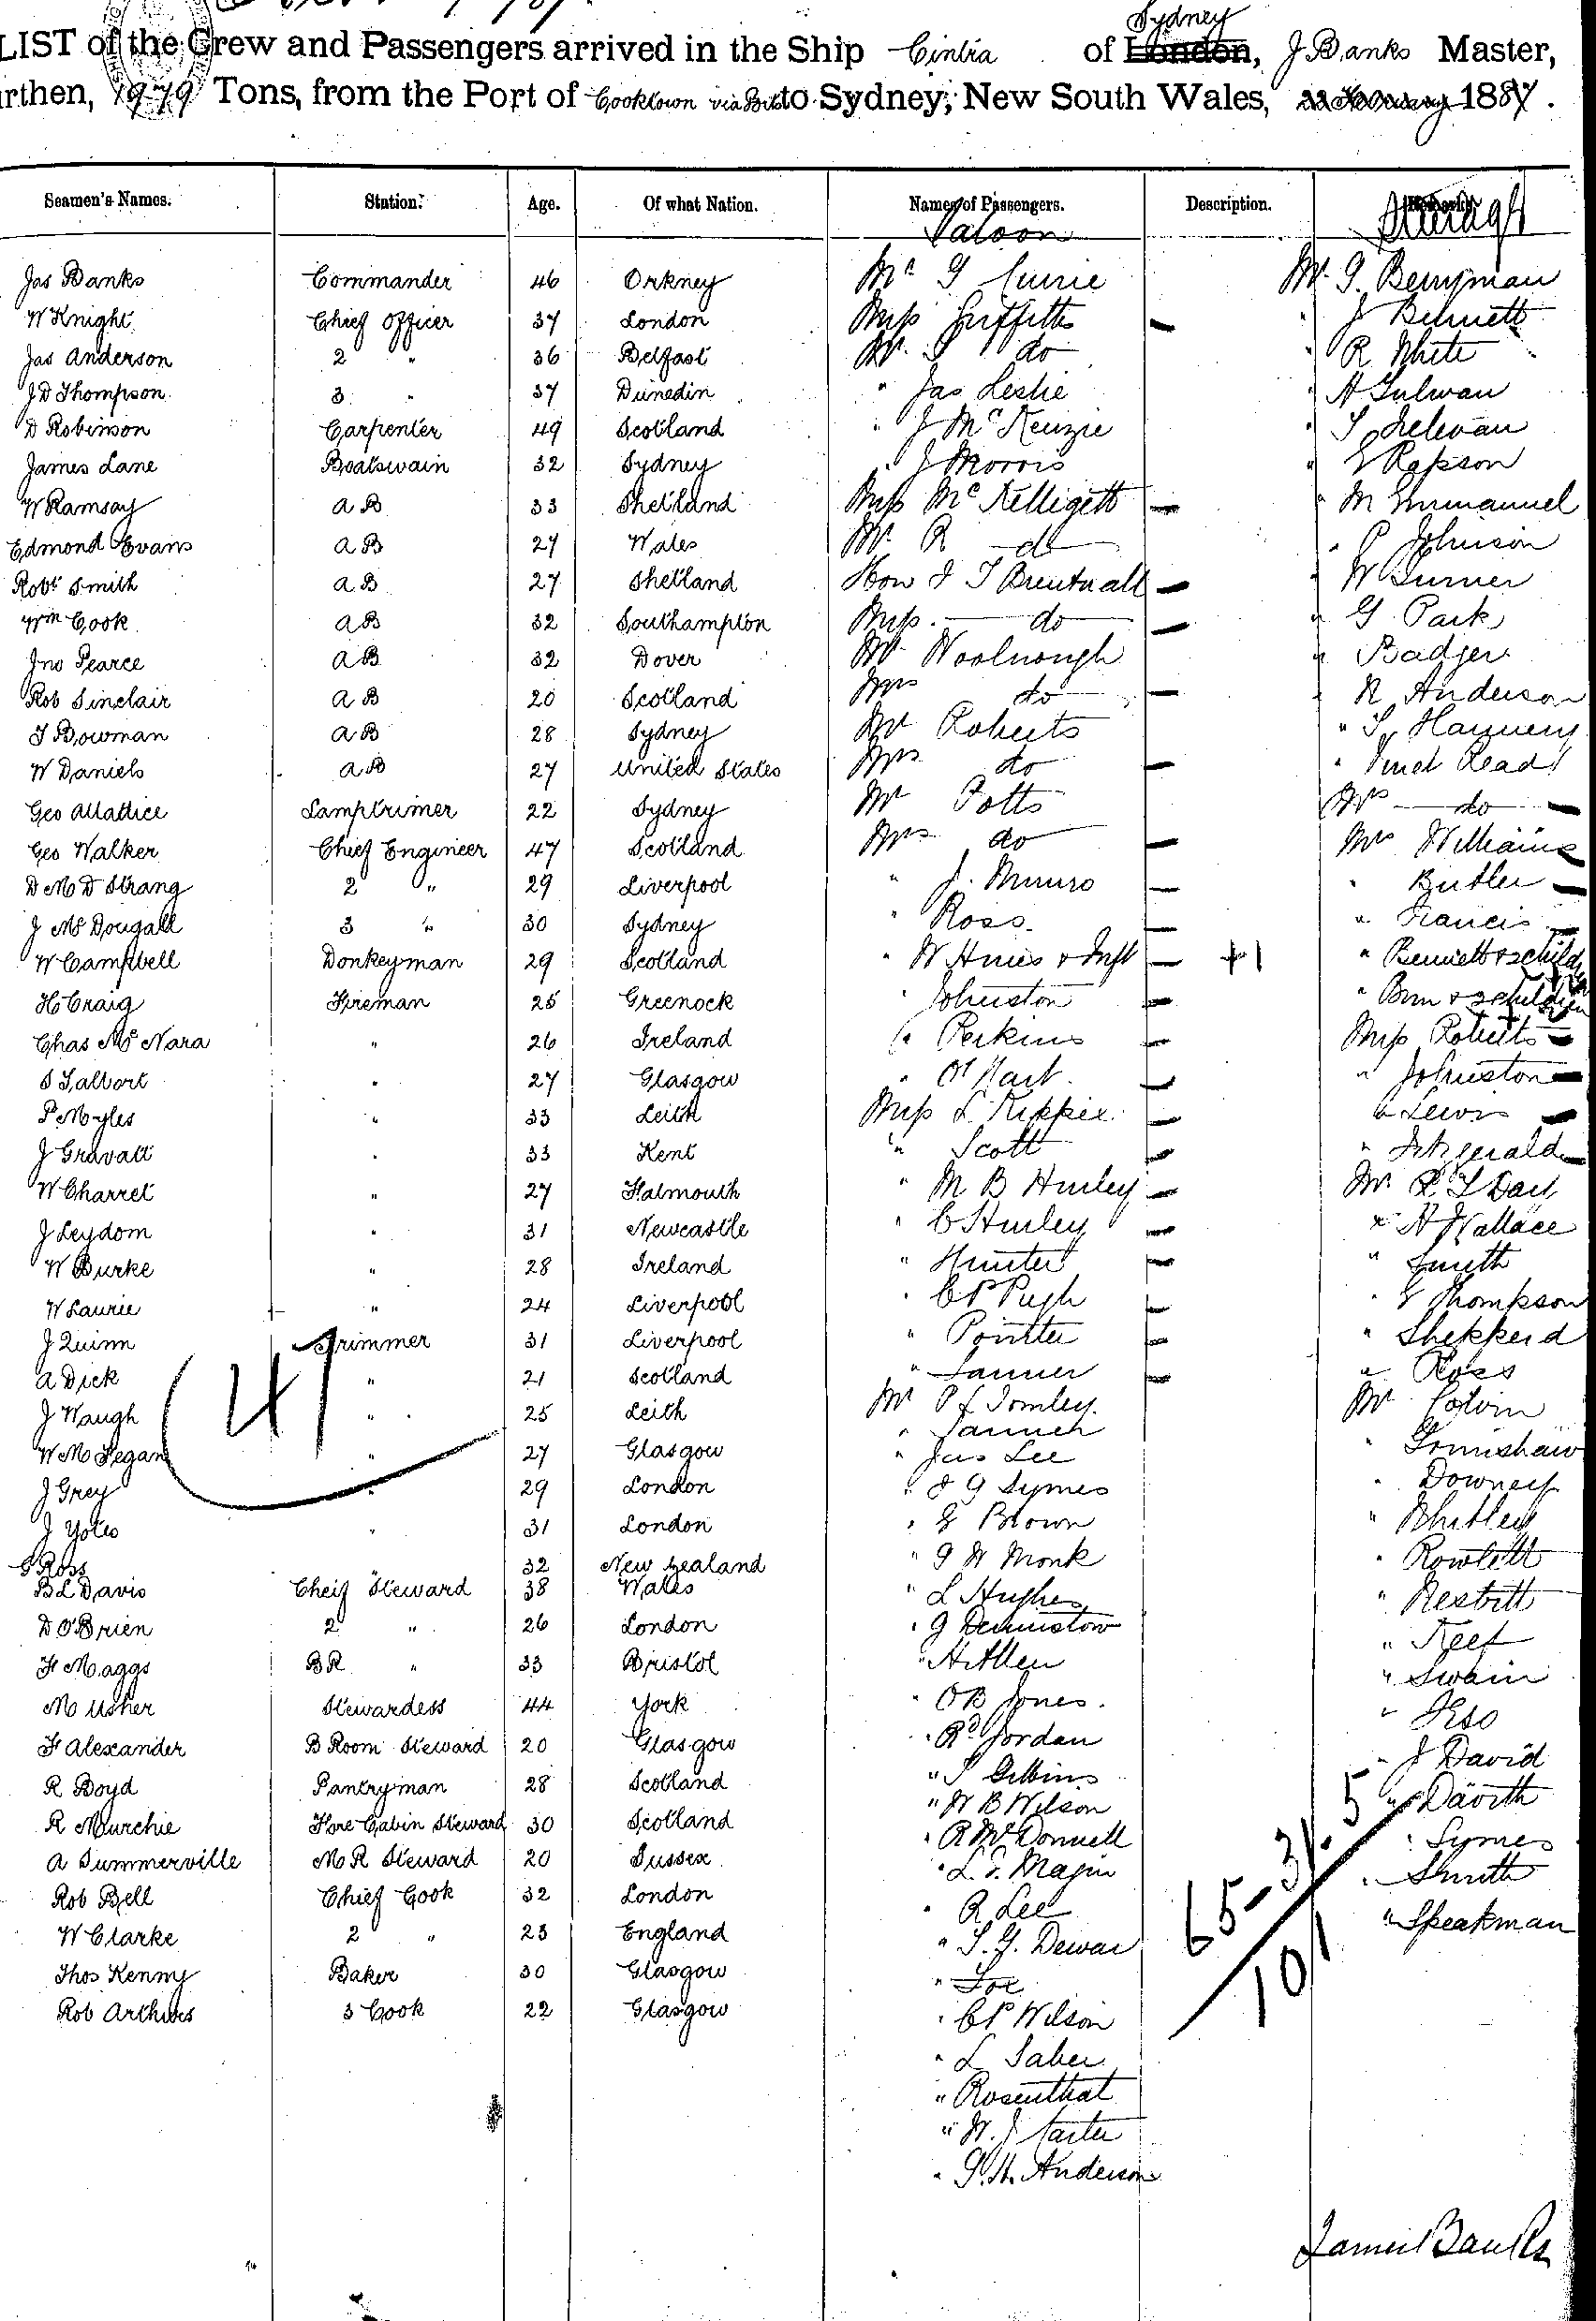 LIST of the Crew and Passengers arrived in the Ship Cintra of Sydney London, J Banks Master,
rthen, 1979 Tons, from the Port of Cooktown via Ports to Sydney, New South Wales, 22 February 1887.
Seamen's Names. Station. Age. Of what Nation. Names of Passengers. Description. Remarks
Saloon Steerage
Jas Banks Commander 46 Orkney Mr G Currie Mr. G. Berryman
W Knight Chief Officer 37 London Miss Griffiths " J Bennett
Jas Anderson 2 " 36 Belfast Mr. S do " R White
J D Thompson 3 " 37 Dunedin " Jas Leslie " A
D Robinson Carpenter 49 Scotland " J McKenzie "
James Lane Boatswain 32 Sydney " J Morris " Rapson
W Ramsay A B 33 Shetland Miss McKelligett " M Emmanuel
Edmond Evans A B 27 Wales Mr. R do " P Johnson
Robt Smith A B 27 Shetland Hon F T Brentnall " W Turner
Wm Cook A B 32 Southampton Miss do " G Park
Jno Pearce A B 32 Dover Mr Woolnough " Badger
Rob Sinclair A B 20 Scotland Mrs do " R Anderson
T Bowman A B 28 Sydney Mr Roberts "
W Daniels A B 27 United States Mrs do " Read
Geo Allattice Lamptrimer 22 Sydney Mr Potts Mrs do
Geo Walker Chief Engineer 47 Scotland Mrs do Mrs Williams
D McD Strang 2 " 29 Liverpool " J. Munro " Butler
J McDougall 3 " 30 Sydney " Ross " Francis
W Campbell Donkeyman 29 Scotland " W Hines & Inft +1 " Bennett & 2 child
H Craig Fireman 25 Greenock " Johnston " & 2 children
Chas McNara " 26 Ireland " Perkins Miss Roberts
S Talbort " 27 Glasgow " " Johnston
P Myles " 33 Leith Miss L " Lewis
J Gravatt " 33 Kent " Scott " Fitzgerald
W Charret " 27 Falmouth " M B Hurley Mr.
J Leydom " 31 Newcastle " C Hurley " Wallace
W Burke " 28 Ireland " Hunter " Smith
W Laurie " 24 Liverpool " Pugh " Thompson
J Quinn Trimmer 31 Liverpool " " Shepperd
A Dick " 21 Scotland " Tanner " Ross
41
J Waugh " 25 Leith Mr P Tomley Mr. Colvin
W McFegan " 27 Glasgow " Tanner "
J Grey " 29 London " Jas Lee " Downey
J Yotes " 31 London " G Symes " Whitley
Ross 32 New Zealand " Brown " Rowlett
B L Davis Cheif Steward 38 Wales " G W Monk " Nesbitt
D O'Brien 2 " 26 London " L Hughes " Keef
F Maggs B R " 33 Bristol " G Dennistow " Swain
M Usher Stewardess 44 York " Allen
F Alexander B Room Steward 20 Glasgow " O B Jones " J David
R Boyd Pantryman 28 Scotland " Rd Jordan
R Murchie Fore Cabin Steward 30 Scotland " S " Symes
A Summerville M R Steward 20 Sussex " W B Wilson " Smith
Rob Bell Chief Cook 32 London " R McDonnell " Speakman
W Clarke 2 " 23 England " L. Magin
Thos Kenny Baker 30 Glasgow " R Lee
Rob Arthurs 3 Cook 22 Glasgow " Dewar
" Fox
" C P Wilson
" L Saber
" Rosenthal
" W. J Carter
" Anderson
65-31.5
101
James Banks